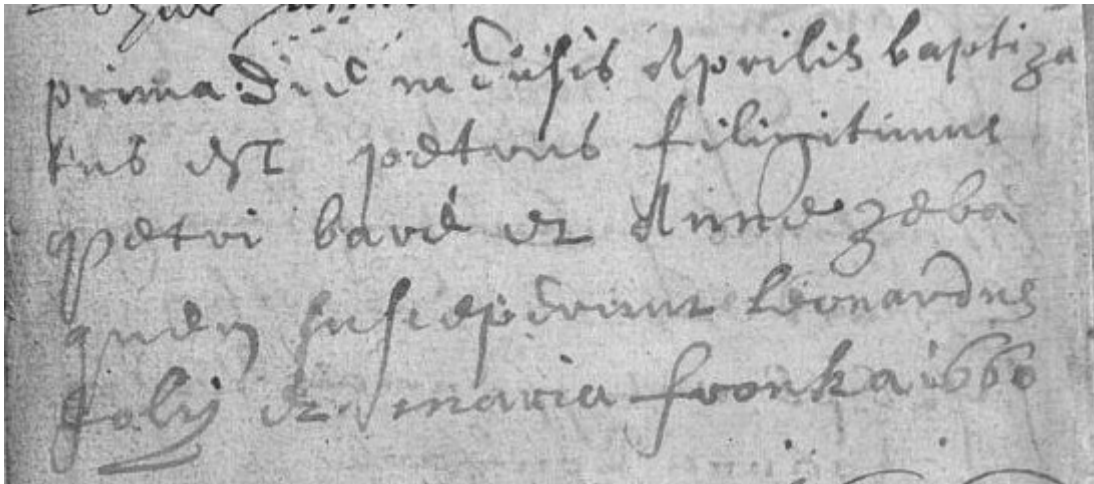 prima die mensis Aprilis baptiza
tus est petrus fili legitimus
petri baré et Anne zeba
quem susceperunt Leonardus
et maria fronka 1660